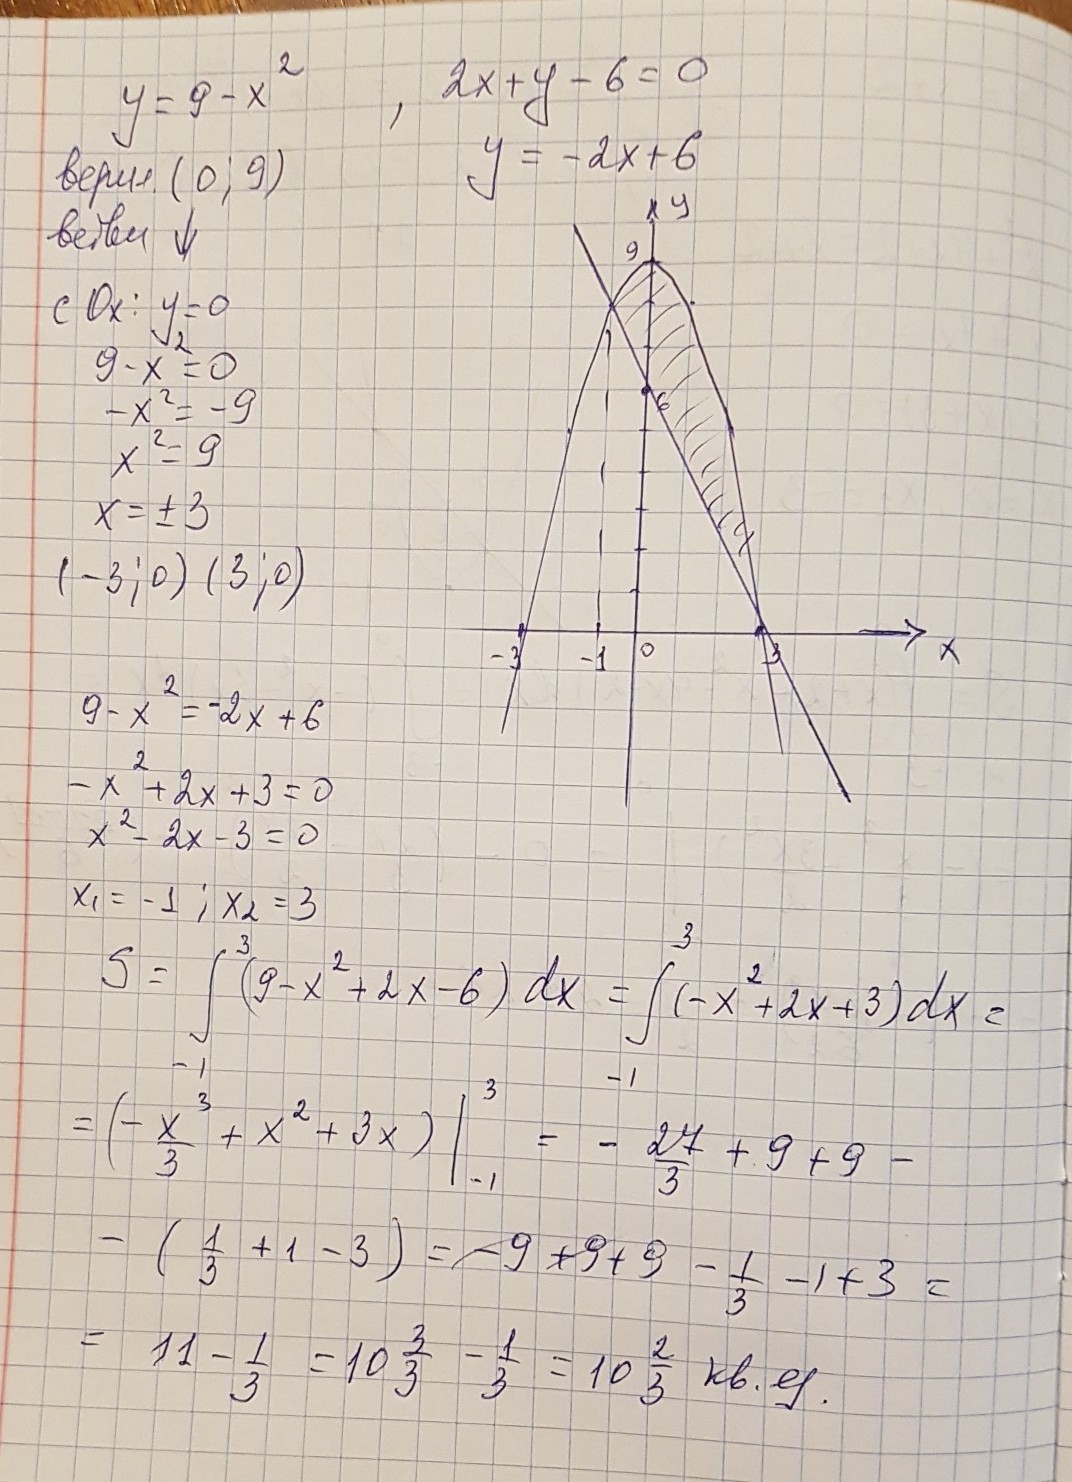 y = 9 - x² , 2x + y - 6 = 0
y = -2x + 6
верш. (0; 9)
ветви ↓
с Ox: y = 0
9 - x² = 0
-x² = -9
x² = 9
x = ±3
(-3; 0) (3; 0)
y
9
6
-3 -1 0 3 x
9 - x² = -2x + 6
-x² + 2x + 3 = 0
x² - 2x - 3 = 0
x₁ = -1 ; x₂ = 3
S = ∫₋₁³ (9 - x² + 2x - 6) dx = ∫₋₁³ (-x² + 2x + 3) dx =
= (-x³/3 + x² + 3x) |₋₁³ = - 27/3 + 9 + 9 -
- (1/3 + 1 - 3) = -9 + 9 + 9 - 1/3 - 1 + 3 =
= 11 - 1/3 = 10 3/3 - 1/3 = 10 2/3 кв. ед.